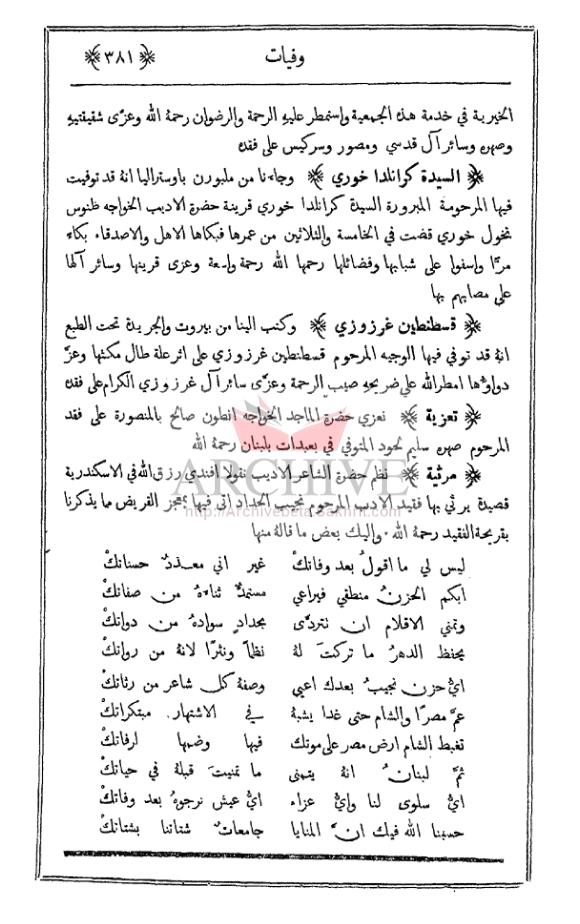 وفيات ﴿٣٨١﴾
الخيرية في خدمة هذه الجمعية واستمطر عليهِ الرحمة والرضوان رحمهُ الله وعزَّى شقيقتيهِ
وصهره وسائر آل قدسي ومصور وسركيس على فقده
﴿ السيدة كرانلدا خوري ﴾ وجاءَنا من ملبورن باوستراليا انهُ قد توفيت
فيها المرحومة المبرورة السيدة كرانلدا خوري قرينة حضرة الاديب الخواجه طنوس
نخول خوري قضت في الخامسة والثلاثين من عمرها فبكاها الاهل والاصدقاء بكاء
مرًّا واسفوا على شبابها وفضائلها رحمها الله رحمة واسعة وعزى قرينها وسائر آلها
على مصابهم بها
﴿ قسطنطين غرزوزي ﴾ وكتب الينا من بيروت والجريدة تحت الطبع
انهُ قد توفي فيها الوجيه المرحوم قسطنطين غرزوزي على اثر علة طال مكثها وعزَّ
دواؤها امطر الله على ضريحهِ صيب الرحمة وعزَّى سائر آل غرزوزي الكرام على فقده
﴿ تعزية ﴾ نعزي حضرة الماجد الخواجه انطون صالح بالمنصورة على فقد
المرحوم صهره سليم لحود المتوفي في بعبدات بلبنان رحمهُ الله
﴿ مرثية ﴾ نظم حضرة الشاعر الاديب نقولا افندي رزق الله في الاسكندرية
قصيدة يرثي بها فقيد الادب المرحوم نجيب الحداد اتى فيها بمعجز القريض مما يذكرنا
بقريحة الفقيد رحمهُ الله . واليك بعض ما قالهُ منها
ليس لي ما اقولُ بعد وفاتكْ غير اني معدّدٌ حسناتكْ
ابكم الحزنُ منطقي فيراعي مستمدٌّ ثناءهُ من صفاتكْ
وتمنى الاقلام ان تتردَّى بحدادٍ سوادهُ من دواتكْ
يحفظ الدهرُ ما تركتَ لهُ نظمًا ونثرًا لانهُ من رواتكْ
ايُّ حزن نجيبُ بعدك اعيى وصفهُ كل شاعر من رثاتكْ
عمَّ مصرًا والشام حتى غدا يشبهُ في الاشتهار مبتكراتكْ
تغبط الشام ارض مصر على موتك فيها وضمها لرفاتكْ
ثمَّ لبنانُ انهُ يتمنى ما تمنيتَ قبلهُ في حياتكْ
ايُّ سلوى لنا وايُّ عزاء ايُّ عيش نرجوهُ بعد وفاتكْ
حسبنا الله فيك انَّ المنايا جامعاتٌ شتاتنا بشتاتكْ
ARCHIVE
http://Archivebeta.Sakhrit.com